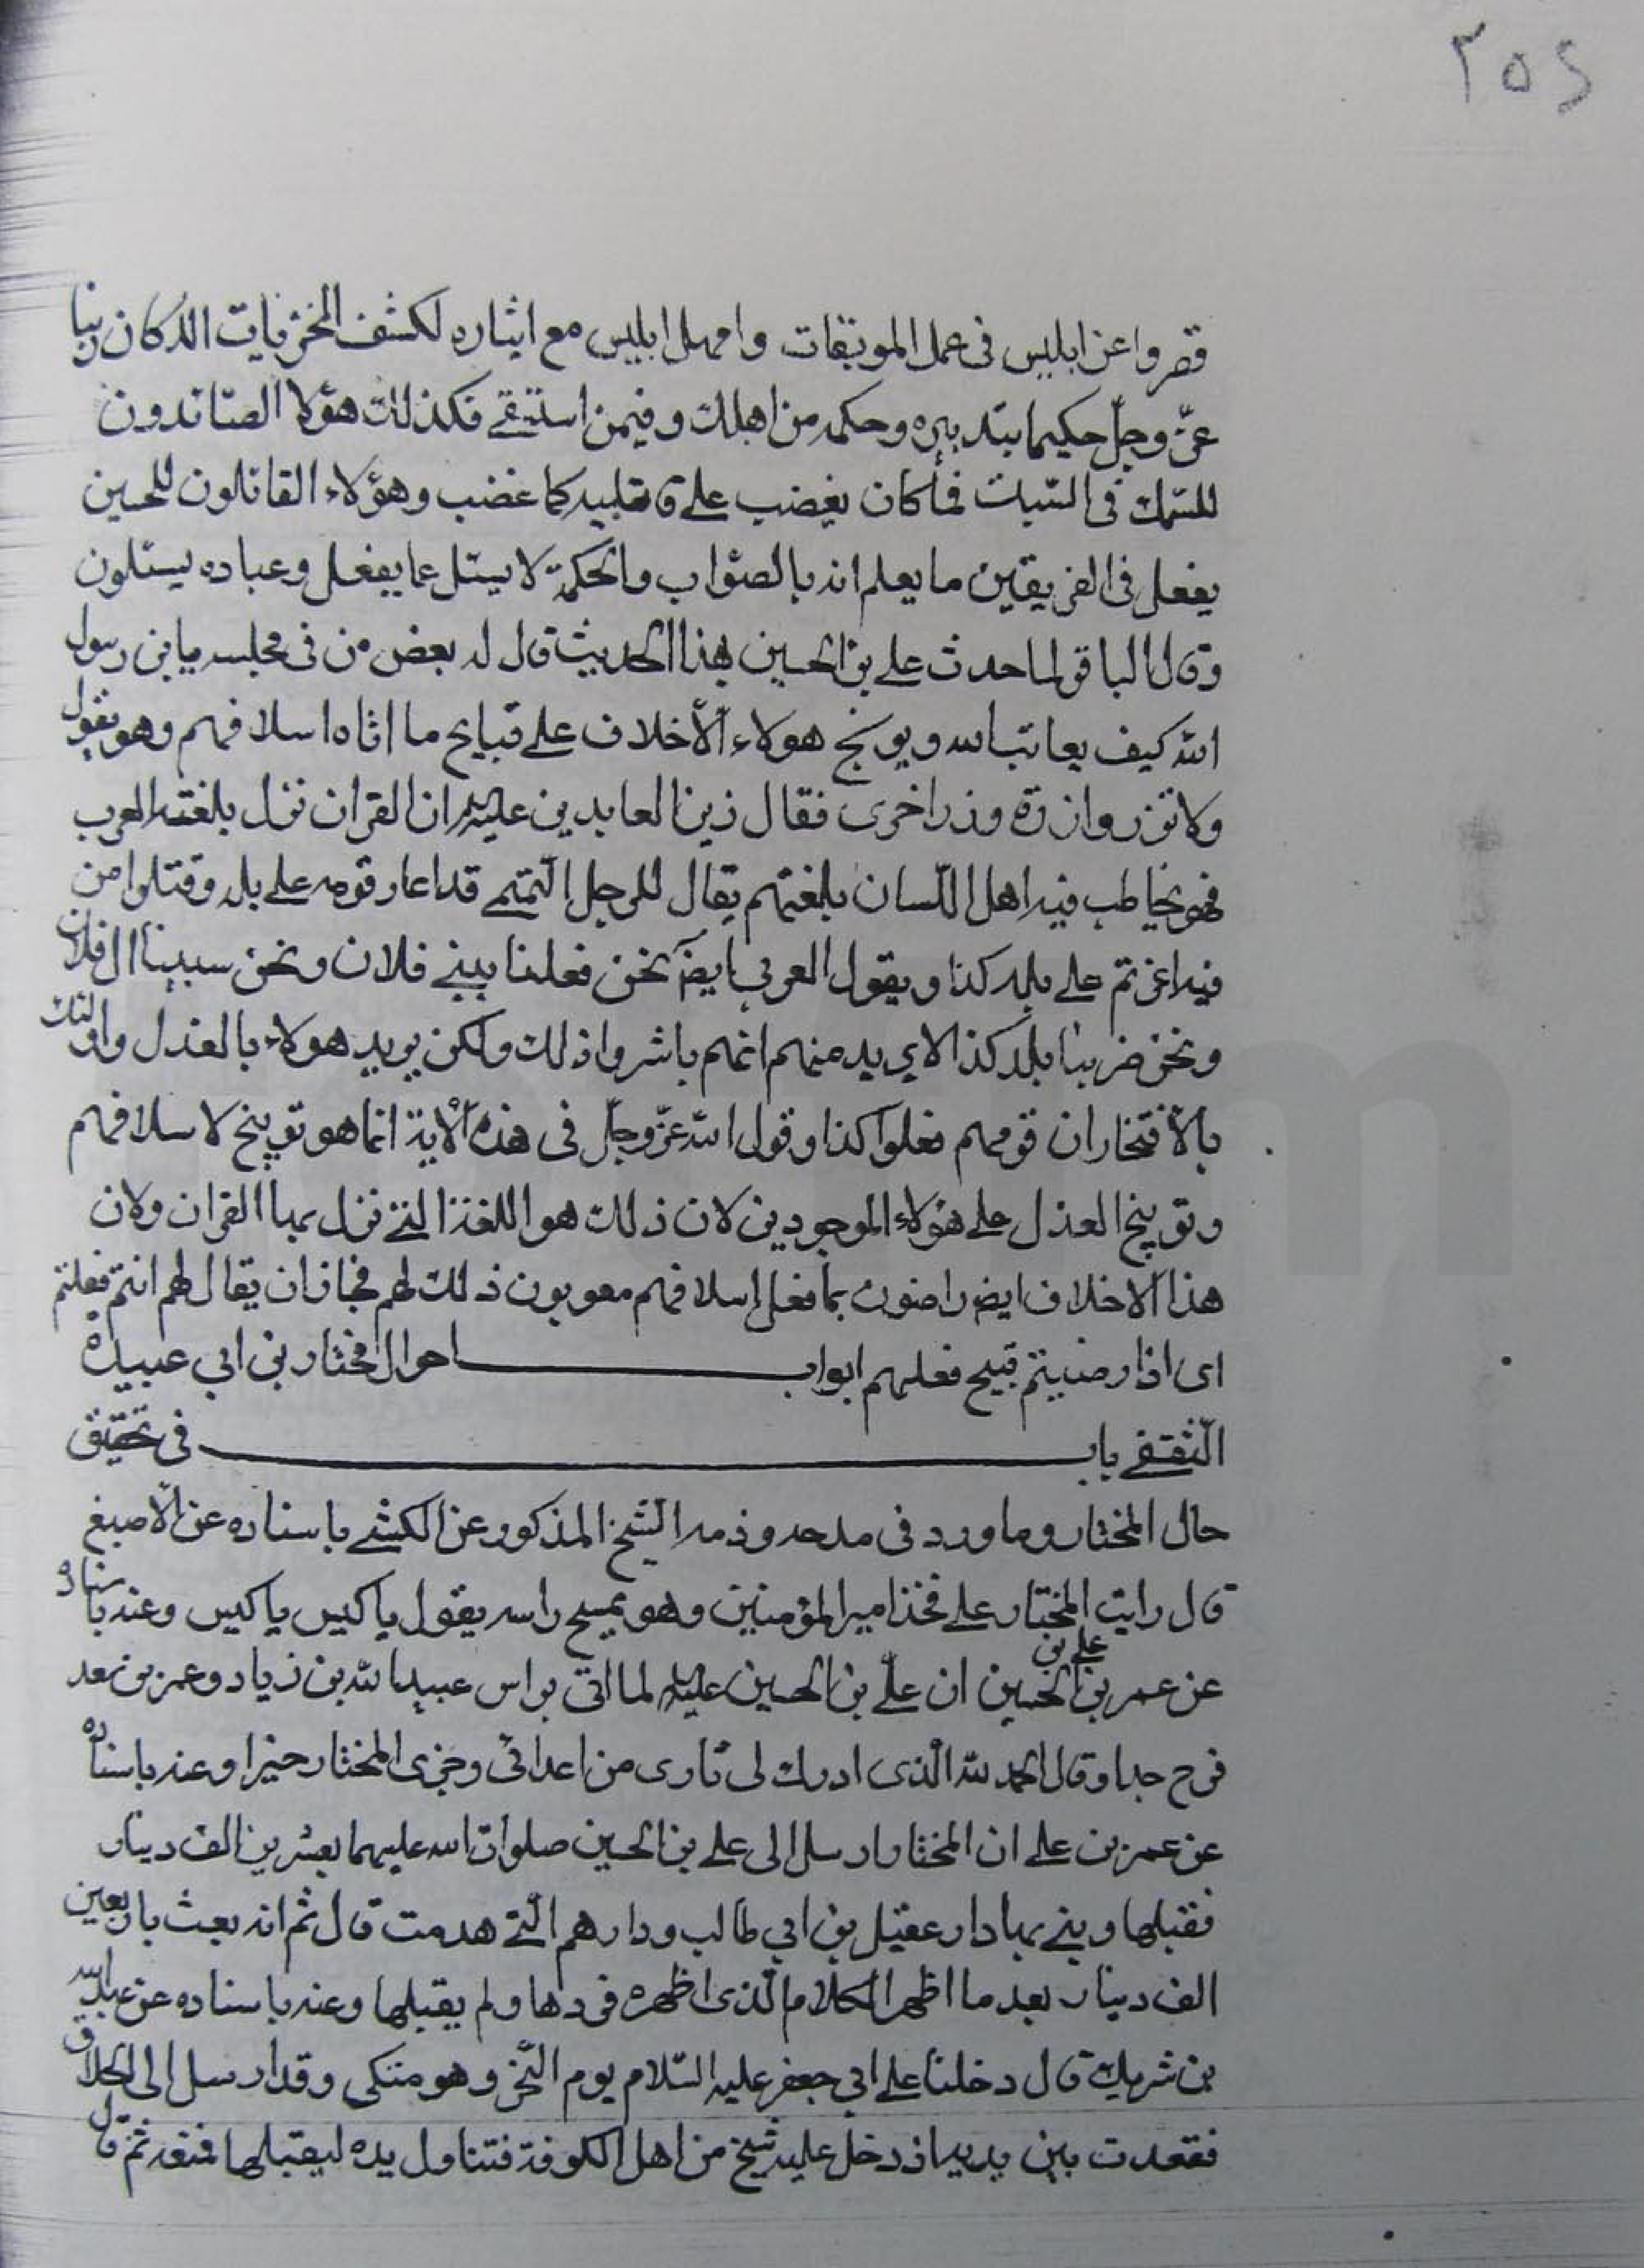 ٢٥٤
قصروا عن ابليس فى عمل الموبقات وامهل ابليس مع ايثاره لكشف المخزيات الا كان ربنا
عزّ وجلّ حكيما بتدبيره وحكمه من اهلك وفيمن استبقى فكذلك هؤلا الصائدون
للسّمك فى السّبت فما كان يغضب على قاتليه كما غضب وهؤلاء القاتلون للحسين
يفعل فى الفريقين ما يعلم انه بالصّواب والحكمة لا يسئل عما يفعل وعباده يسئلون
وقال الباقر لما حدث على بن الحسين بهذا الحديث قال له بعض من فى مجلسه يابن رسول
الله كيف يعاتب الله ويوبخ هولاء الأخلاف على قبايح ما اتاه اسلافهم وهو يقول
ولا تزر وازرة وزر اخرى فقال زين العابدين عليه ان القران نزل بلغة العرب
فهو يخاطب فيه اهل اللّسان بلغتهم يقال للرجل التّميمى قد اغار قومه على بلد وقتلوا من
فيه اغرتم على بلد كذا ويقول العربى ايضا نحن فعلنا ببنى فلان ونحن سبينا ال فلان
ونحن خربنا بلد كذا لا يريد منهم انهم باشروا ذلك ولكن يريد هولاء بالعذل واولئك
بالأفتخار ان قومهم فعلوا كذا وقول الله عزّ وجلّ فى هذه الأية انما هو توبيخ لاسلافهم
وتوبيخ العذل على هؤلاء الموجودين لان ذلك هو اللغة التى نزل بها القران ولان
هذا الاخلاف ايضا راضون بما فعل اسلافهم معوبون ذلك لهم فجاز ان يقال لهم انتم فعلتم
اى اذا رضيتم قبيح فعلهم ابواب احوال المختار بن ابى عبيدة
الثّقفى باب فى تحقيق
حال المختار وما ورد فى مدحه وذمه الشّيخ المذكور عن الكشى باسناده عن الأصبغ
قال رايت المختار على فخذ امير المؤمنين وهو يمسح راسه يقول ياكيس ياكيس وعنه باسناده
عن عمر بن علي بن الحسين ان علىّ بن الحسين عليه لما اتى براس عبيد الله بن زياد وعمر بن سعد
فرح جدا وقال الحمد لله الّذى ادرك لى ثارى من اعدائى وجزى المختار خيرا وعنه باسناده
عن عمر بن على ان المختار ارسل الى على بن الحسين صلوات الله عليهما بعشرين الف دينار
فقبلها وبنى بها دار عقيل بن ابى طالب ودارهم الّتى هدمت قال ثم انه بعث باربعين
الف دينار بعد ما اظهر الكلام الّذى اظهره فردها ولم يقبلها وعنه باسناده عن عبد الله
بن شريك قال دخلنا على ابى جعفر عليه السّلام يوم النّحر وهو متكى وقد ارسل الى الحلاق
فقعدت بين يديه اذ دخل عليه شيخ من اهل الكوفة فتناول يده ليقبلها فمنعه ثم قال